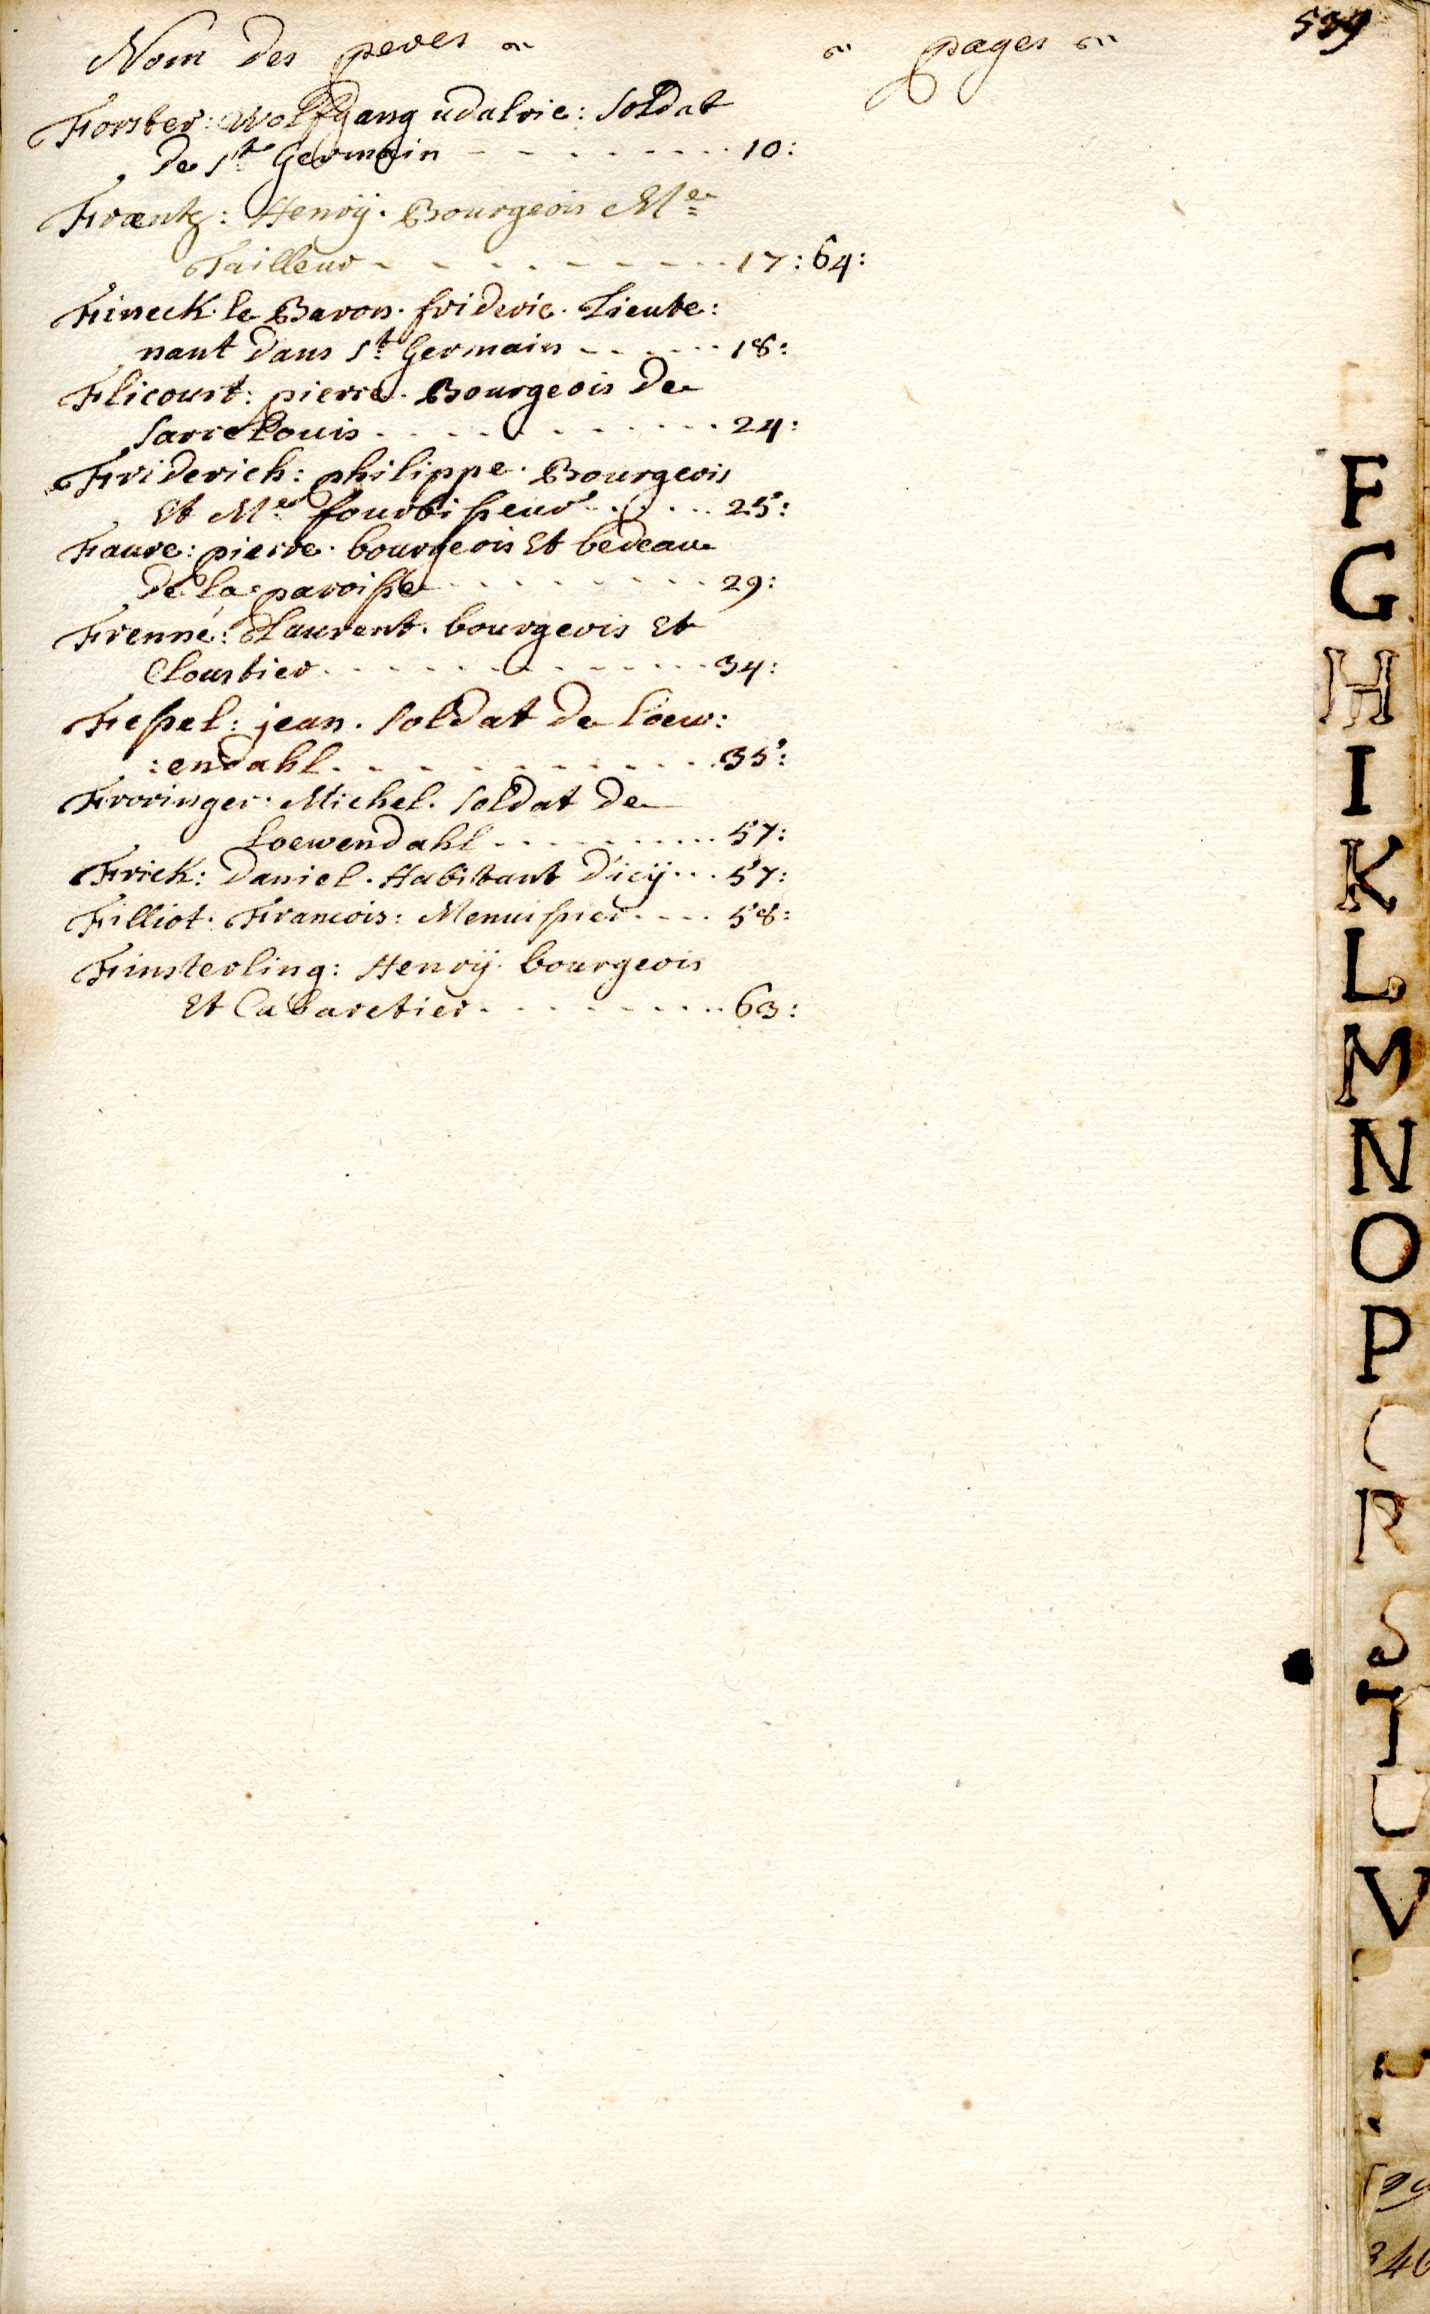 539
Nom des peres pages
Forster: Wolfgang udalric: soldat
de St Germain - - - - - - - - 10:
Frantz: Henrÿ. Bourgeois Me
Tailleur - - - - - - - - - 17: 64:
Fineck. le Baron. frideric. Lieute:
nant dans St Germain - - - - - 18:
Flicourt: pierre. Bourgeois de
sarrelouis - - - - - - - - - 24:
Friderich: philippe. Bourgeois
Et Me fourbisseur - - - - 25:
Faure: pierre. bourgeois Et bedeau
de la paroisse - - - - - - - - - 29:
Frenné: Laurent. bourgeois Et
Cloustier - - - - - - - - - - 34:
Fessel: jean. soldat de Loew:
:endahl - - - - - - - - - - 35:
Froringer: Michel. soldat de
Loewendahl - - - - - - - - 57:
Frick: Daniel. Habitant d'icÿ - - - 57:
Filliot. Francois: Menuissier - - - - 58:
Finsterling: Henrÿ. bourgeois
Et Cabaretier - - - - - - - - 63:
F
G
H
I
K
L
M
N
O
P
R
S
T
U
V